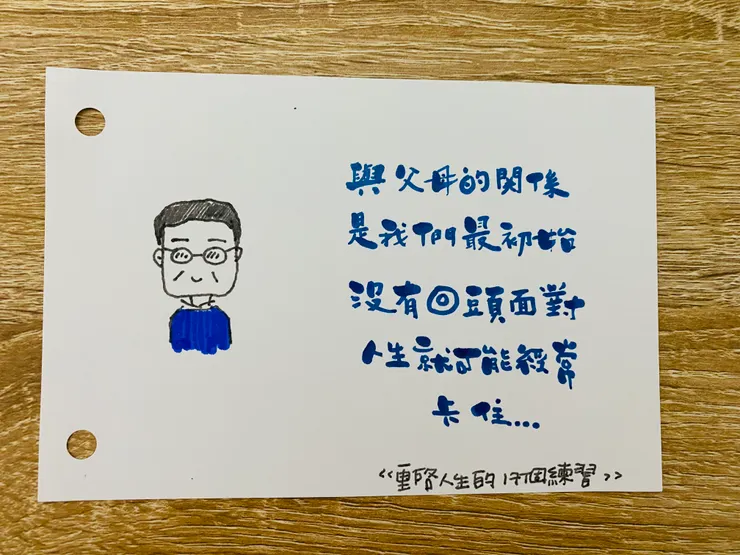 與父母的関係
是我們最初始
沒有回頭面對
人生就可能經常
卡住...
<<重啓人生的17個練習>>